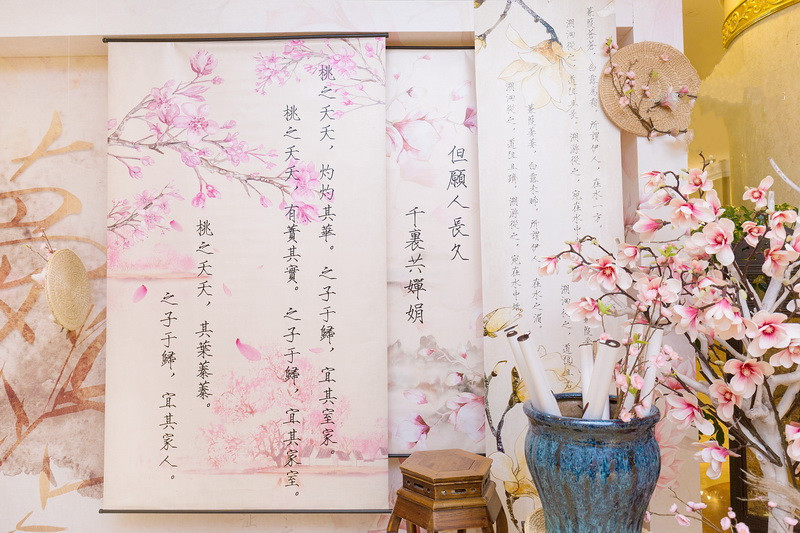 桃之夭夭，灼灼其華。之子于歸，宜其室家。
桃之夭夭，有蕡其實。之子于歸，宜其家室。
桃之夭夭，其葉蓁蓁。
之子于歸，宜其家人。
但願人長久
千裏共嬋娟
蒹葭蒼蒼，白露為霜。所謂伊人，在水一方
溯洄從之，道阻且長。溯游從之，宛在水中
蒹葭萋萋，白露未晞。所謂伊人，在水之湄。
溯洄從之，道阻且躋。溯游從之，宛在水中坻
溯洄從之，道阻且